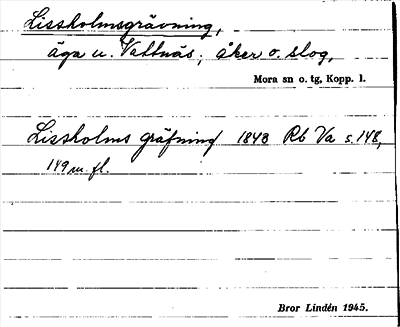 Lissholmsgrävning,
äga u. Vattnäs; åker o. slog,
Mora sn o. tg, Kopp. l.
Lissholms gräfning 1843 Rb Va s. 148,
149 m. fl.
Bror Lindén 1945.